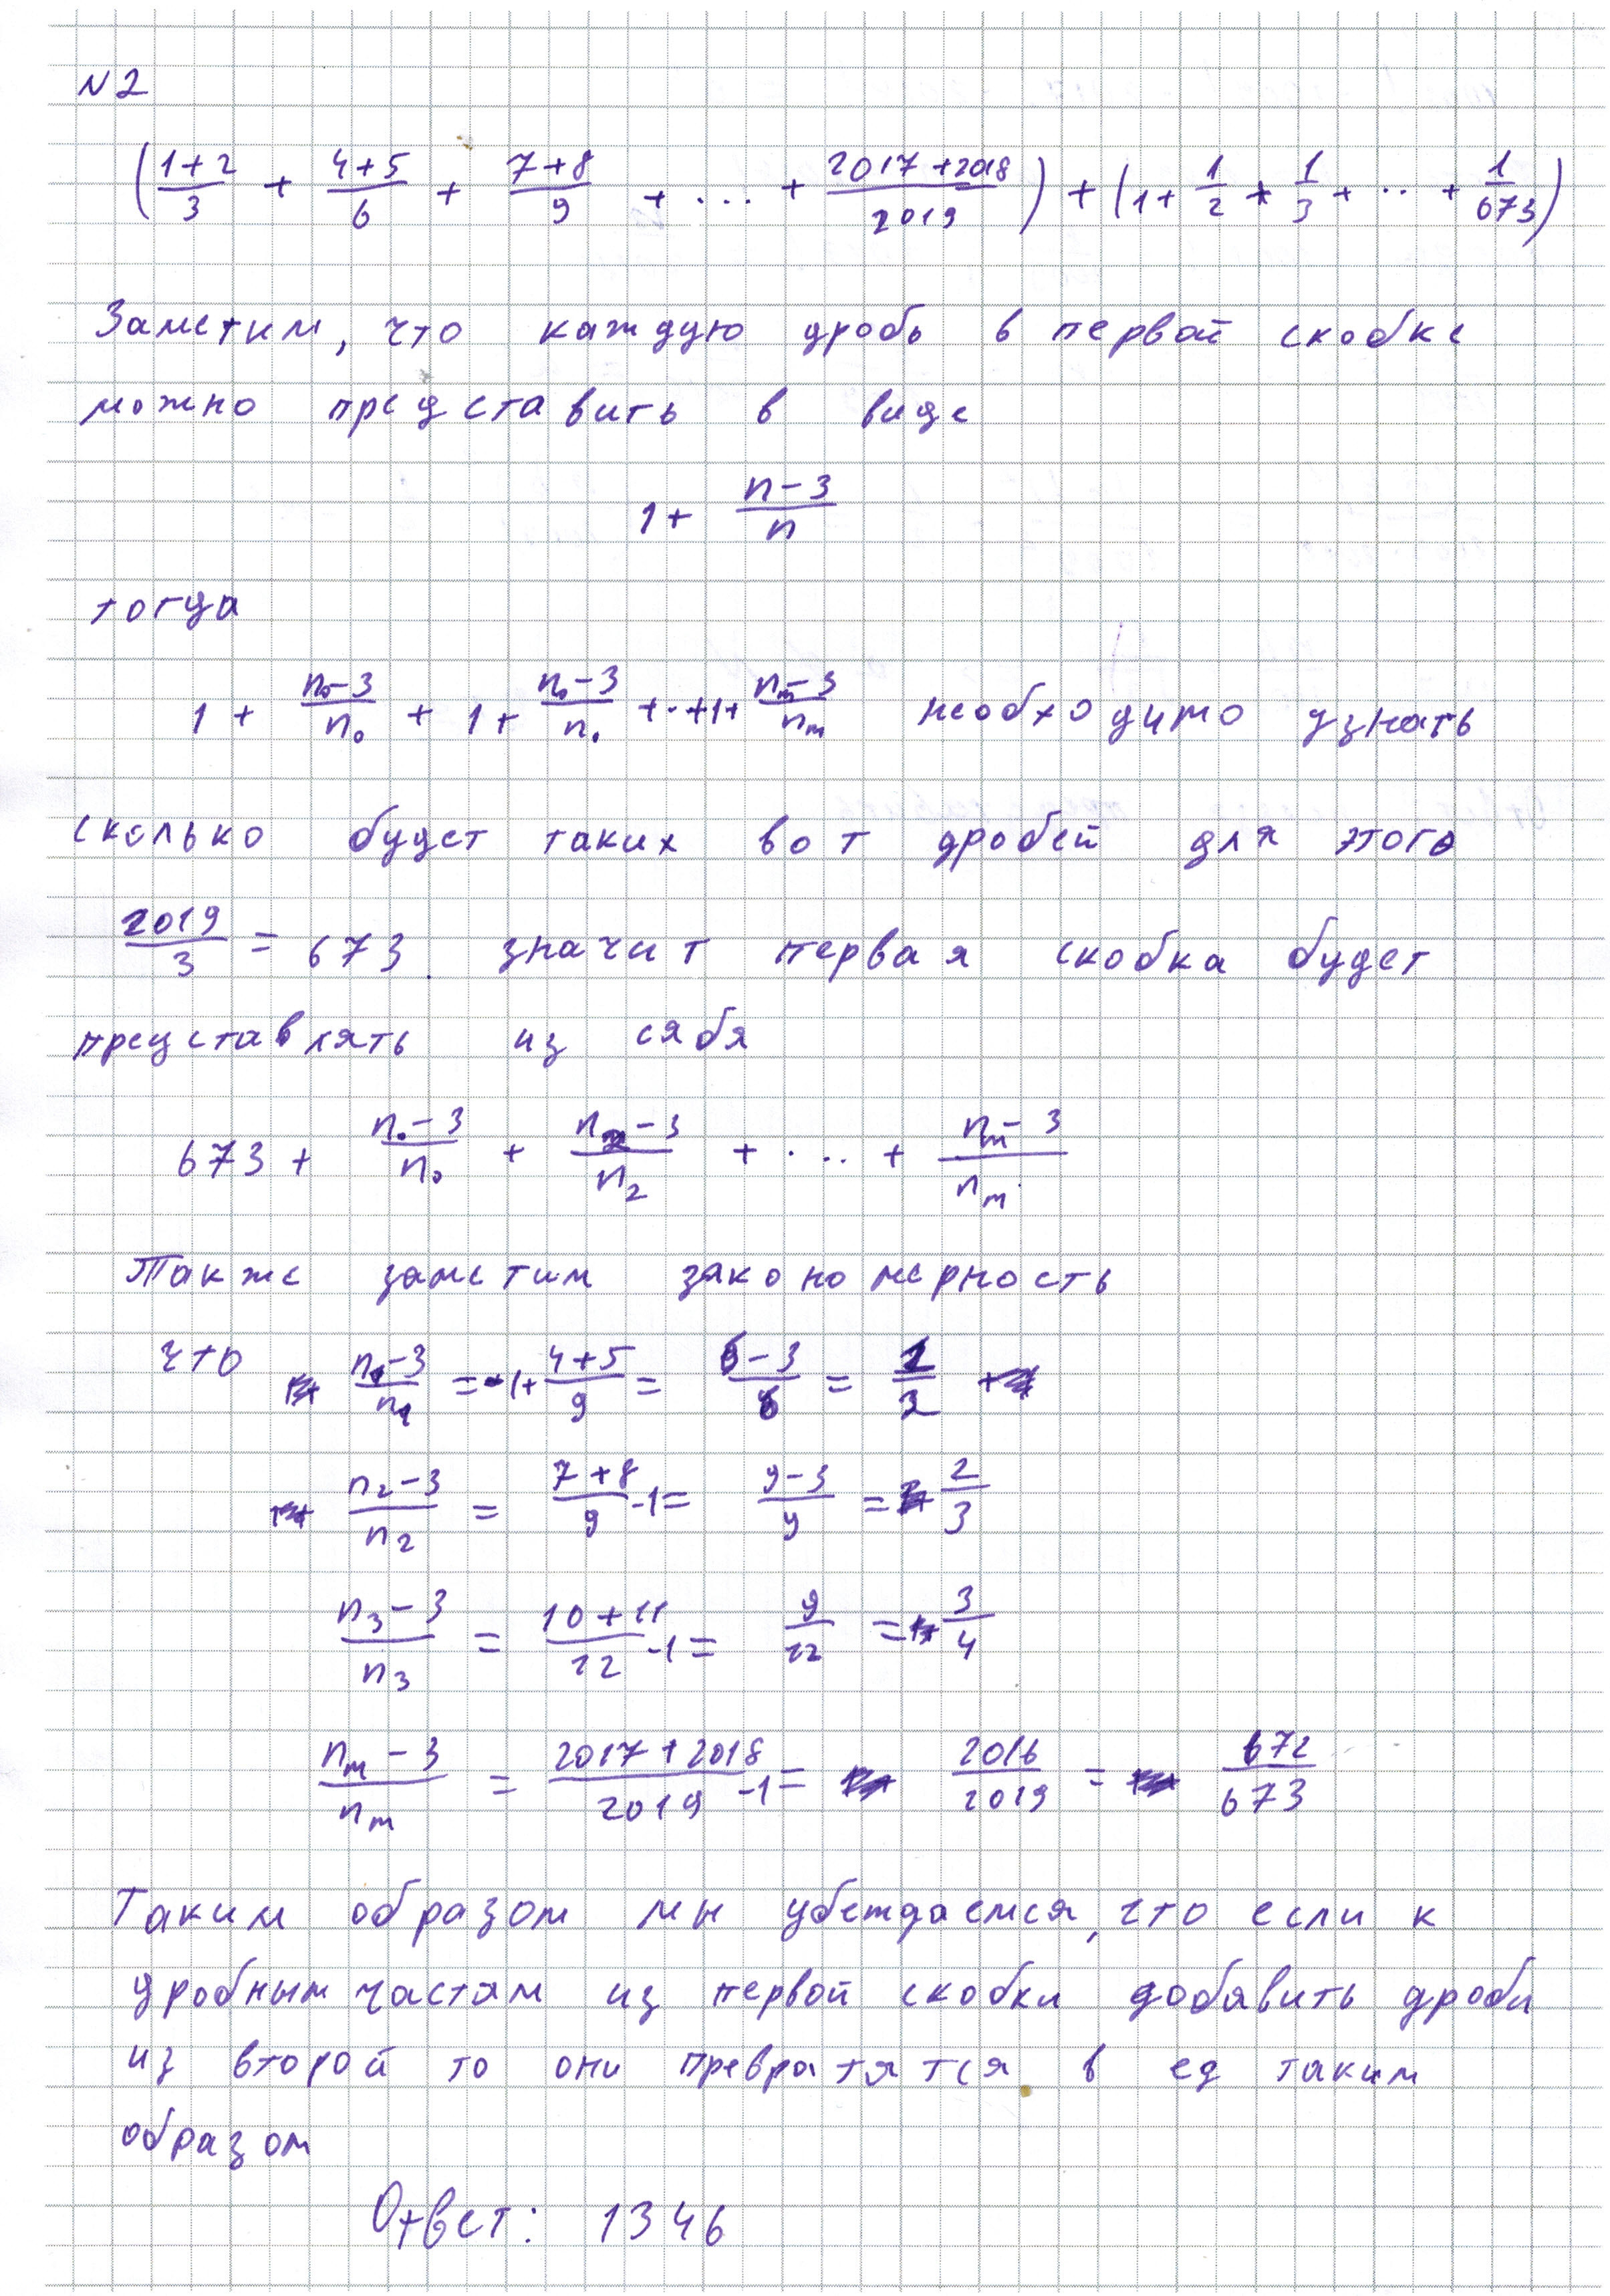 N2
(1+2/3 + 4+5/6 + 7+8/9 + ... + 2017+2018/2019) + (1 + 1/2 + 1/3 + ... + 1/673)
Заметим, что каждую дробь в первой скобке
можно представить в виде
1 + n-3/n
тогда
1 + n₀-3/n₀ + 1 + n₁-3/n₁ + ... + 1 + nₘ-3/nₘ необходимо узнать
сколько будет таких вот дробей для этого
2019/3 = 673. значит первая скобка будет
представлять из сябя
673 + n₀-3/n₀ + n₂-3/n₂ + ... + nₘ-3/nₘ
Также заметим закономерность
что n₁-3/n₁ = -1+ 4+5/9 = 6-3/6 = 1/2
n₂-3/n₂ = 7+8/9 -1 = 9-3/9 = 2/3
n₃-3/n₃ = 10+11/12 -1 = 9/12 = 3/4
nₘ-3/nₘ = 2017+2018/2019 -1 = 2016/2019 = 672/673
Таким образом мы убеждаемся, что если к
дробным частям из первой скобки добавить дроби
из второй то они превратятся в ед таким
образом
Ответ: 1346